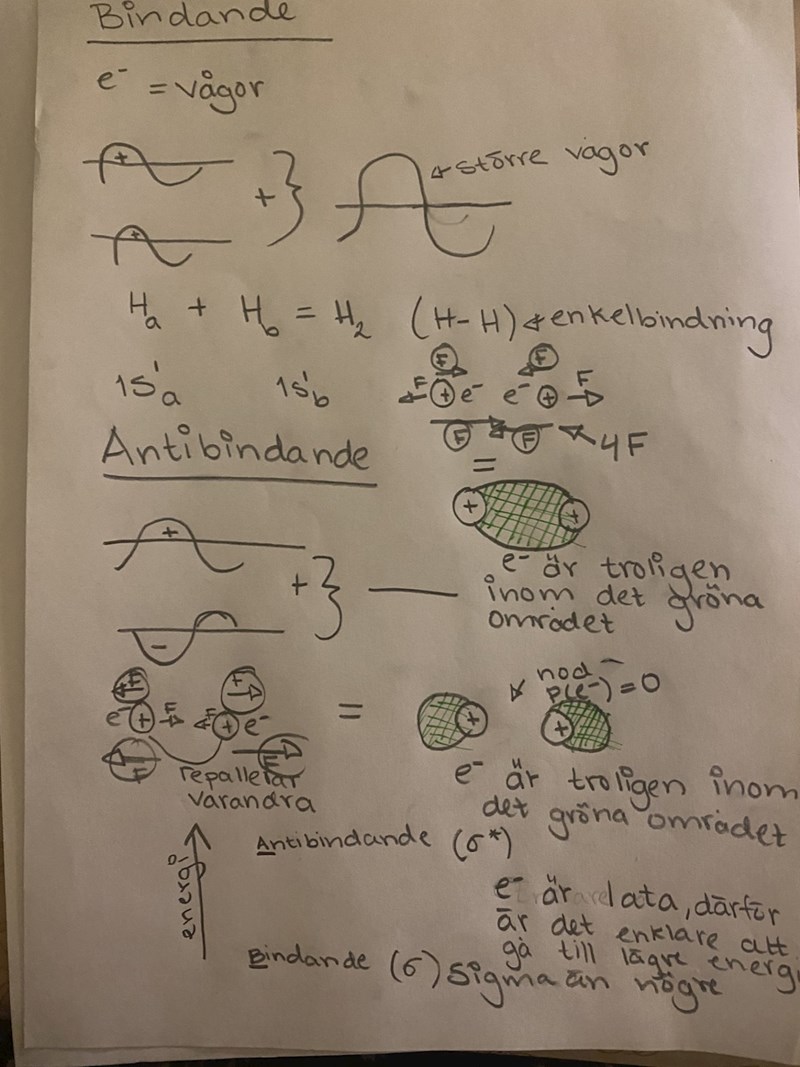 Bindande
e⁻ = vågor
+
+
+ } större vågor
Hₐ + H_b = H₂ (H-H) enkelbindning
1s¹ₐ 1s¹_b
F F
F + e⁻ e⁻ + F
F F 4F
=
Antibindande
+ +
e⁻ är troligen
inom det gröna
området
+
+ }
−
F F
e⁻ + F F + e⁻
F F
repalletar
varandra
=
nod
p(e⁻) = 0
+ +
e⁻ är troligen inom
det gröna området
energi
Antibindande (σ*)
e⁻ är lata, därför
är det enklare att
gå till lägre energi
Bindande (σ) sigma än högre